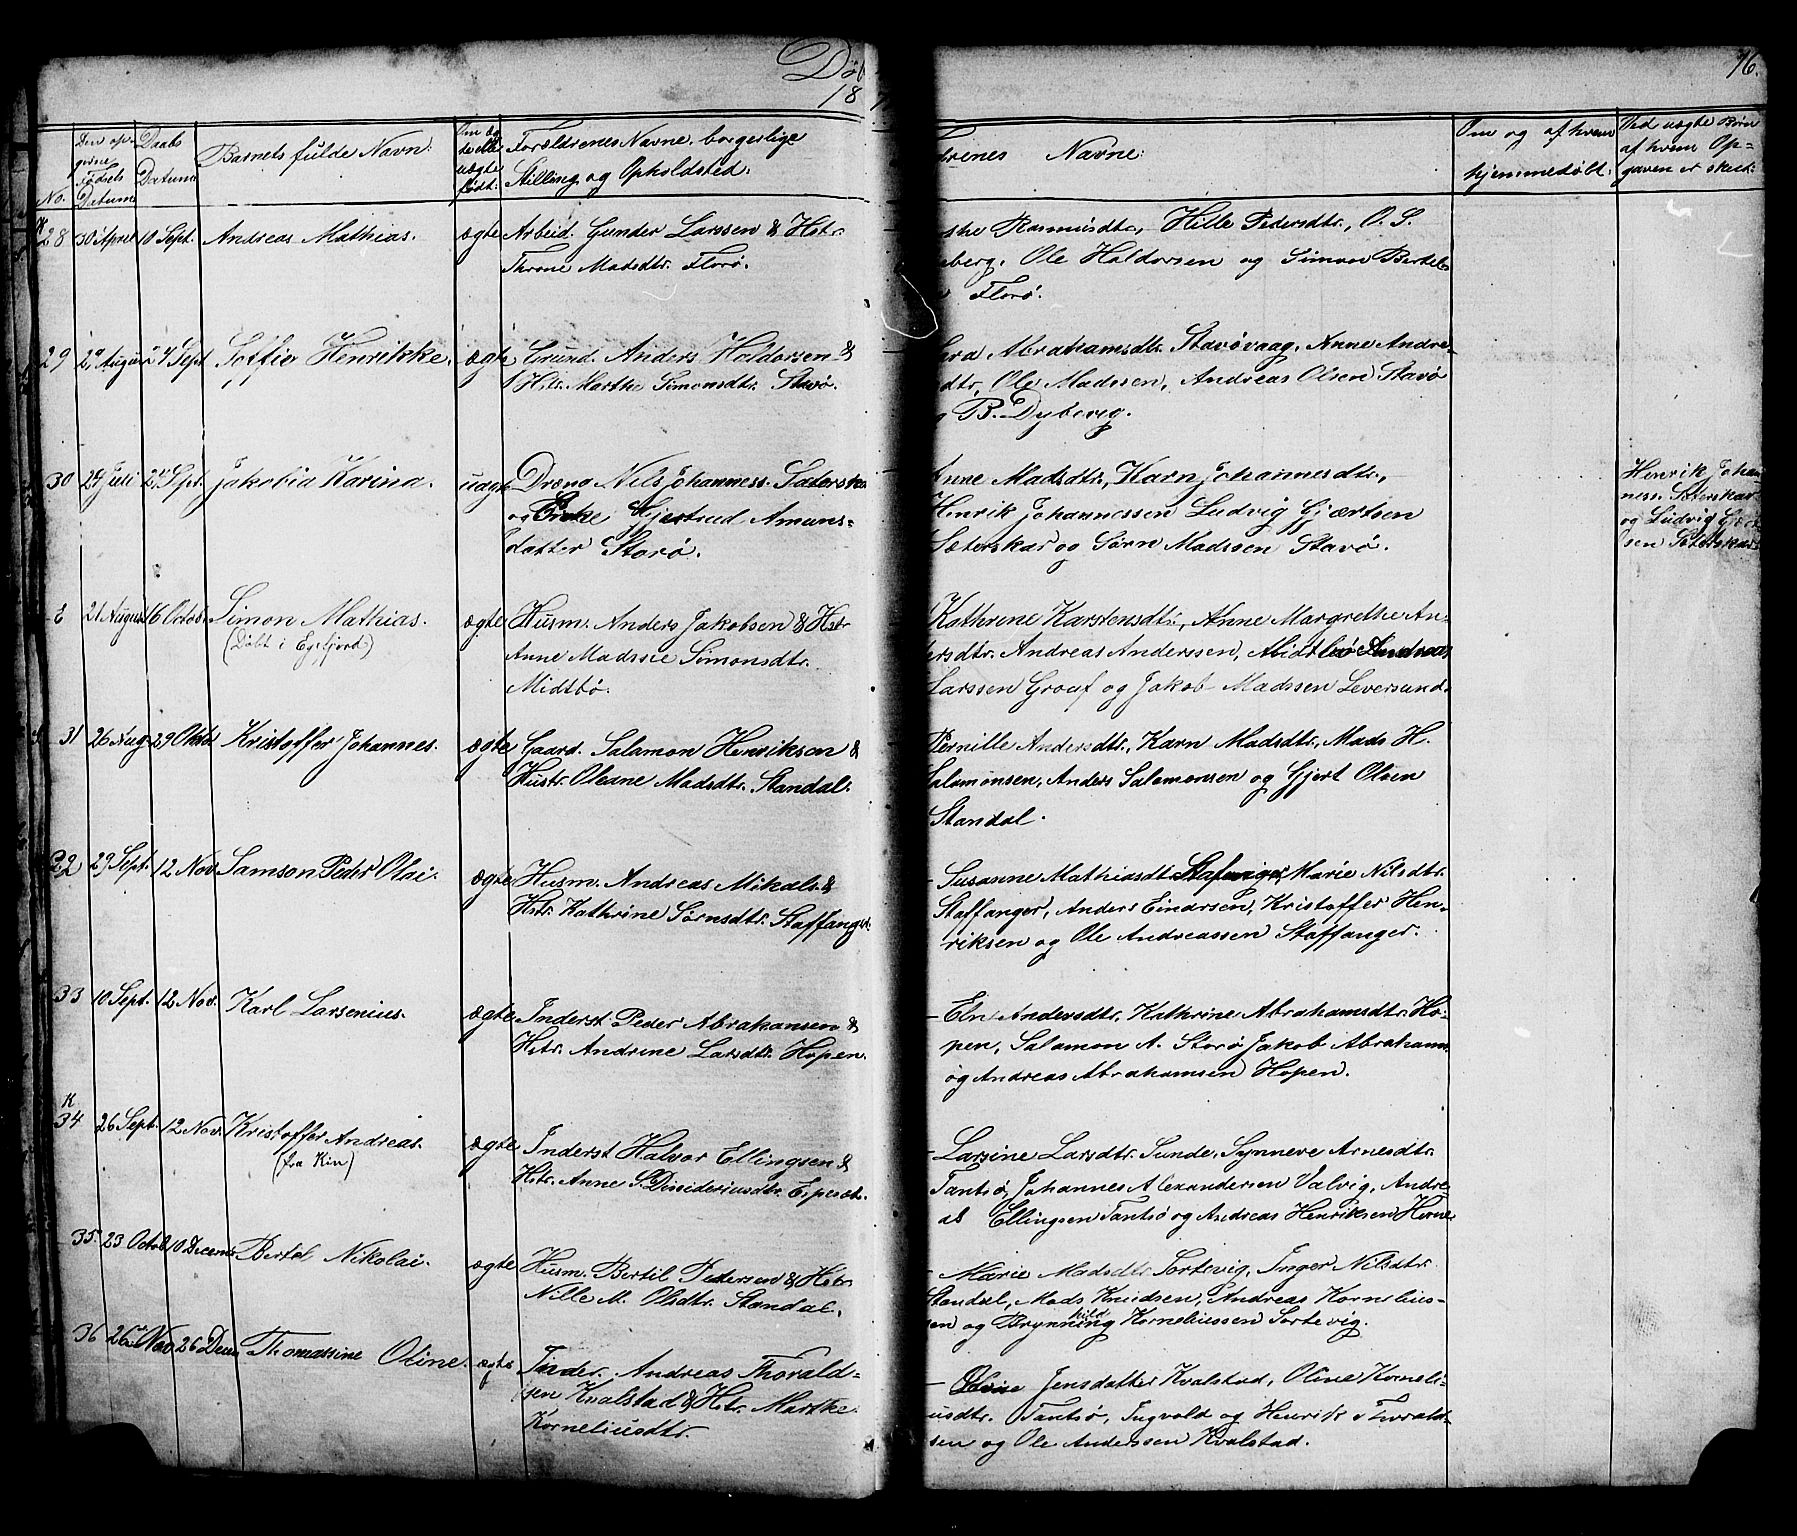 Døb
18
76.
No.
Den op-
givne
Fødsels
Datum
Daabs
Datum
Barnets fulde Navn:
Om æg
te elle
uægte
født:
Forældrenes Navne, borgerlige
Stilling og Opholdsted.
drenes Navne:
Om og af hvem
hjemmedöbt:
Ved uægte Børn
af hvem Op-
gaven er skeet:
K
28 30 April 10 Sept. Andreas Mathias. ægte Arbeid. Gunder Larssen & Hstr.
Throne Madsdtr. Florø.
Rasmusdtr, Hille Pedersdtr., O. S.
berg, Ole Haldorsen og Simon Bertels
Florø.
29 2 August 24 Sept Soffie Henrikke. ægte Grund. Anders Haldorsen &
Hstr. Marthe Simonsdtr. Stavø.
Abrahamsdtr. Stavøvaag, Anne Andre-
dtr, Ole Madssen, Andreas Olsen Stavø
B. Dybevig.
30 24 Juli 24 Sept. Jakobia Karina. uægte Dreng Nils Johanness. Sæterskar
og Enke Gjertrud Amuns-
datter Storø.
Anne Madsdtr., Karn Johannesdtr.,
Henrik Johannessen Ludvig Gjærtsen
Sæterskar og Sørn Madssen Stavø.
Henrik Johan
ness. Sæterskar
og Ludvig Gjert
sen Sæterskar
E 21 August 16 Octob. Simon Mathias.
(Döbt i Eysfjord)
ægte Husm. Anders Jakobsen & Hstr
Anne Madssie Simonsdtr.
Midtbö.
Kathrine Karstensdtr., Anne Margrethe An-
dersdtr. Andreas Anderssen, Midtbö Andreas
Larssen Grouf og Jakob Madssen Leversund.
31 26 Aug. 29 Oktb Kristoffer Johannes. ægte Gaard. Salamon Henriksen &
Hustr. Oleane Madsdtr. Standal.
Pernille Andersdtr., Karn Madsdtr., Mads H.
Salamonsen, Anders Salamonsen og Gjert Olsen
Standal.
32 29 Sept. 12 Nov. Samson Peder Olai. ægte Husm. Andreas Mikals. &
Hstr. Kathrine Sørnsdtr. Staffanger.
- Susanne Mathiasdtr. Stafanger, Marie Nilsdtr.
Staffanger, Anders Eindrsen, Kristoffer Hen-
riksen og Ole Andreassen Staffanger.
33 10 Sept. 12 Nov. Karl Larsenius. ægte Inderst Peder Abrahamsen &
Hstr. Andrine Larsdtr. Hopen.
- Eln Andersdtr., Kathrine Abrahamsdtr. Ho-
pen, Salamon A. Storø Jakob Abrahams
og Andreas Abrahamsen Hopen.
K
34 26 Sept. 12 Nov. Kristoffer Andreas.
(fra Kin)
ægte Inderst Halvor Ellingsen &
Hstr. Anne S. Dissideriusdtr. Espeset.
- Larsine Larsdtr. Sunde, Synneve Arnesdtr.
Tantsø, Johannes Alexandersen Valvig, Andre-
as Ellingsen Tantsø og Andreas Henriksen
35 23 Octob 10 Decemb Bertel Nikolai. ægte Husm. Bertil Pedersen & Hstr
Nille M. Olsdtr. Standal.
- Marie Madsdtr. Sortevig, Inger Nilsdtr.
Standal, Mads Knudsen, Andreas Kornelius-
sen og Brynning hild Korneliussen Sortevig.
36 26 Nov 26 Decm Thomassine Oline. ægte Inder. Andreas Thorald-
sen Kvalstad & Hstr. Marthe
Korneliusdtr.
- Oline Jensdatter Kvalstad, Oline Korneli-
usdtr. Tantsø, Ingvald og Henrik Torald-
sen og Ole Anderssen Kvalstad.